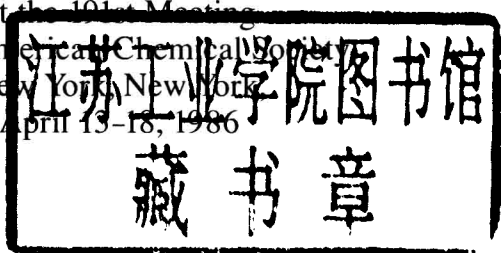 t the 191st Meeting
merican Chemical Society
ew York, New York
April 13–18, 1986
江苏工业学院图书馆
藏书章